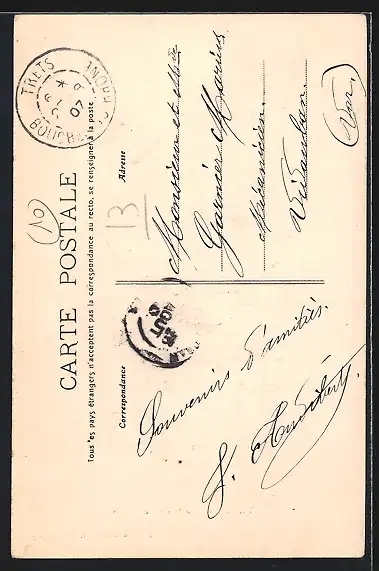 CARTE POSTALE
Tous les pays étrangers n'acceptent pas la correspondance au recto, se renseigner à la poste
Correspondance
Adresse
TRETS
(10)
13
AOUT
Souvenirs d'amitiés.
Monsieur et Mme
Garnier Marius
Mécanicien
Vidauban
(Var)